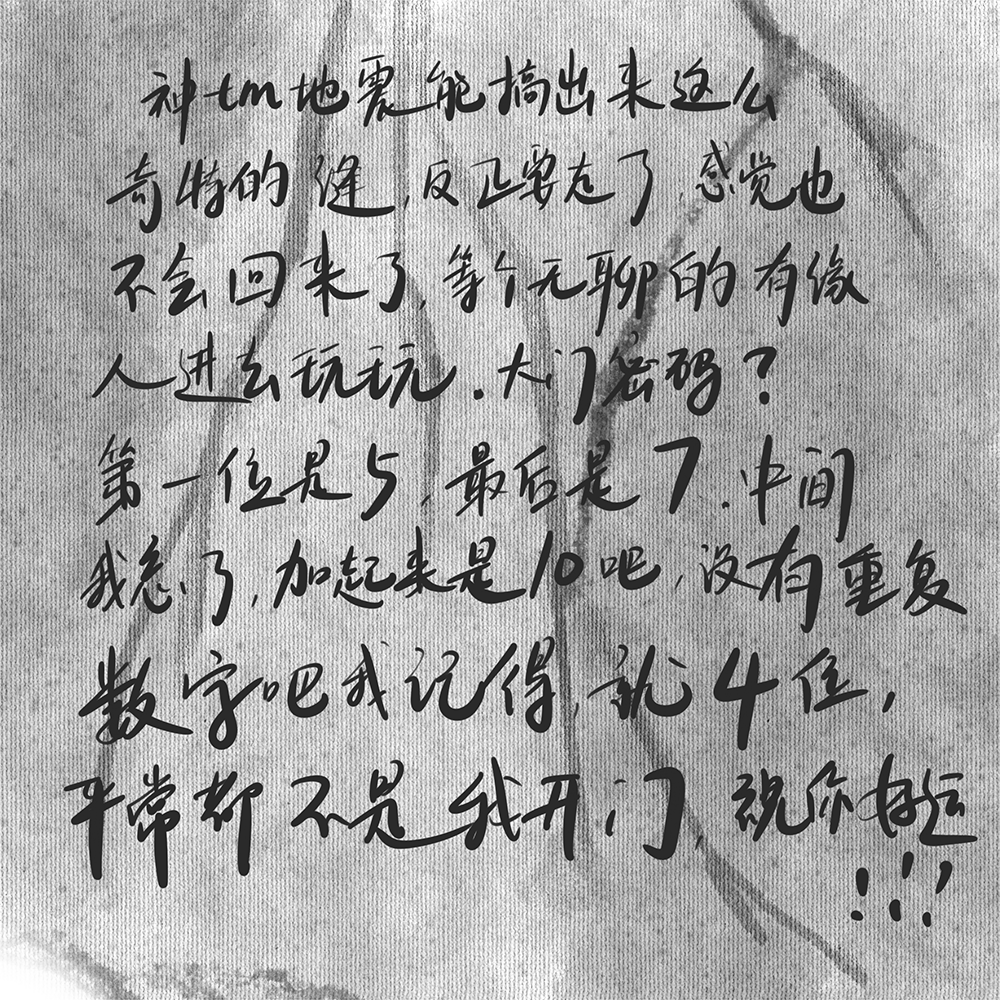 神tm地震能搞出来这么
奇特的缝,反正要走了,感觉也
不会回来了,等个无聊的有缘
人进去玩玩.大门密码?
第一位是5,最后是7.中间
我忘了,加起来是10吧,没有重复
数字吧我记得,就4位,
平常都不是我开门,祝你好运
!!!